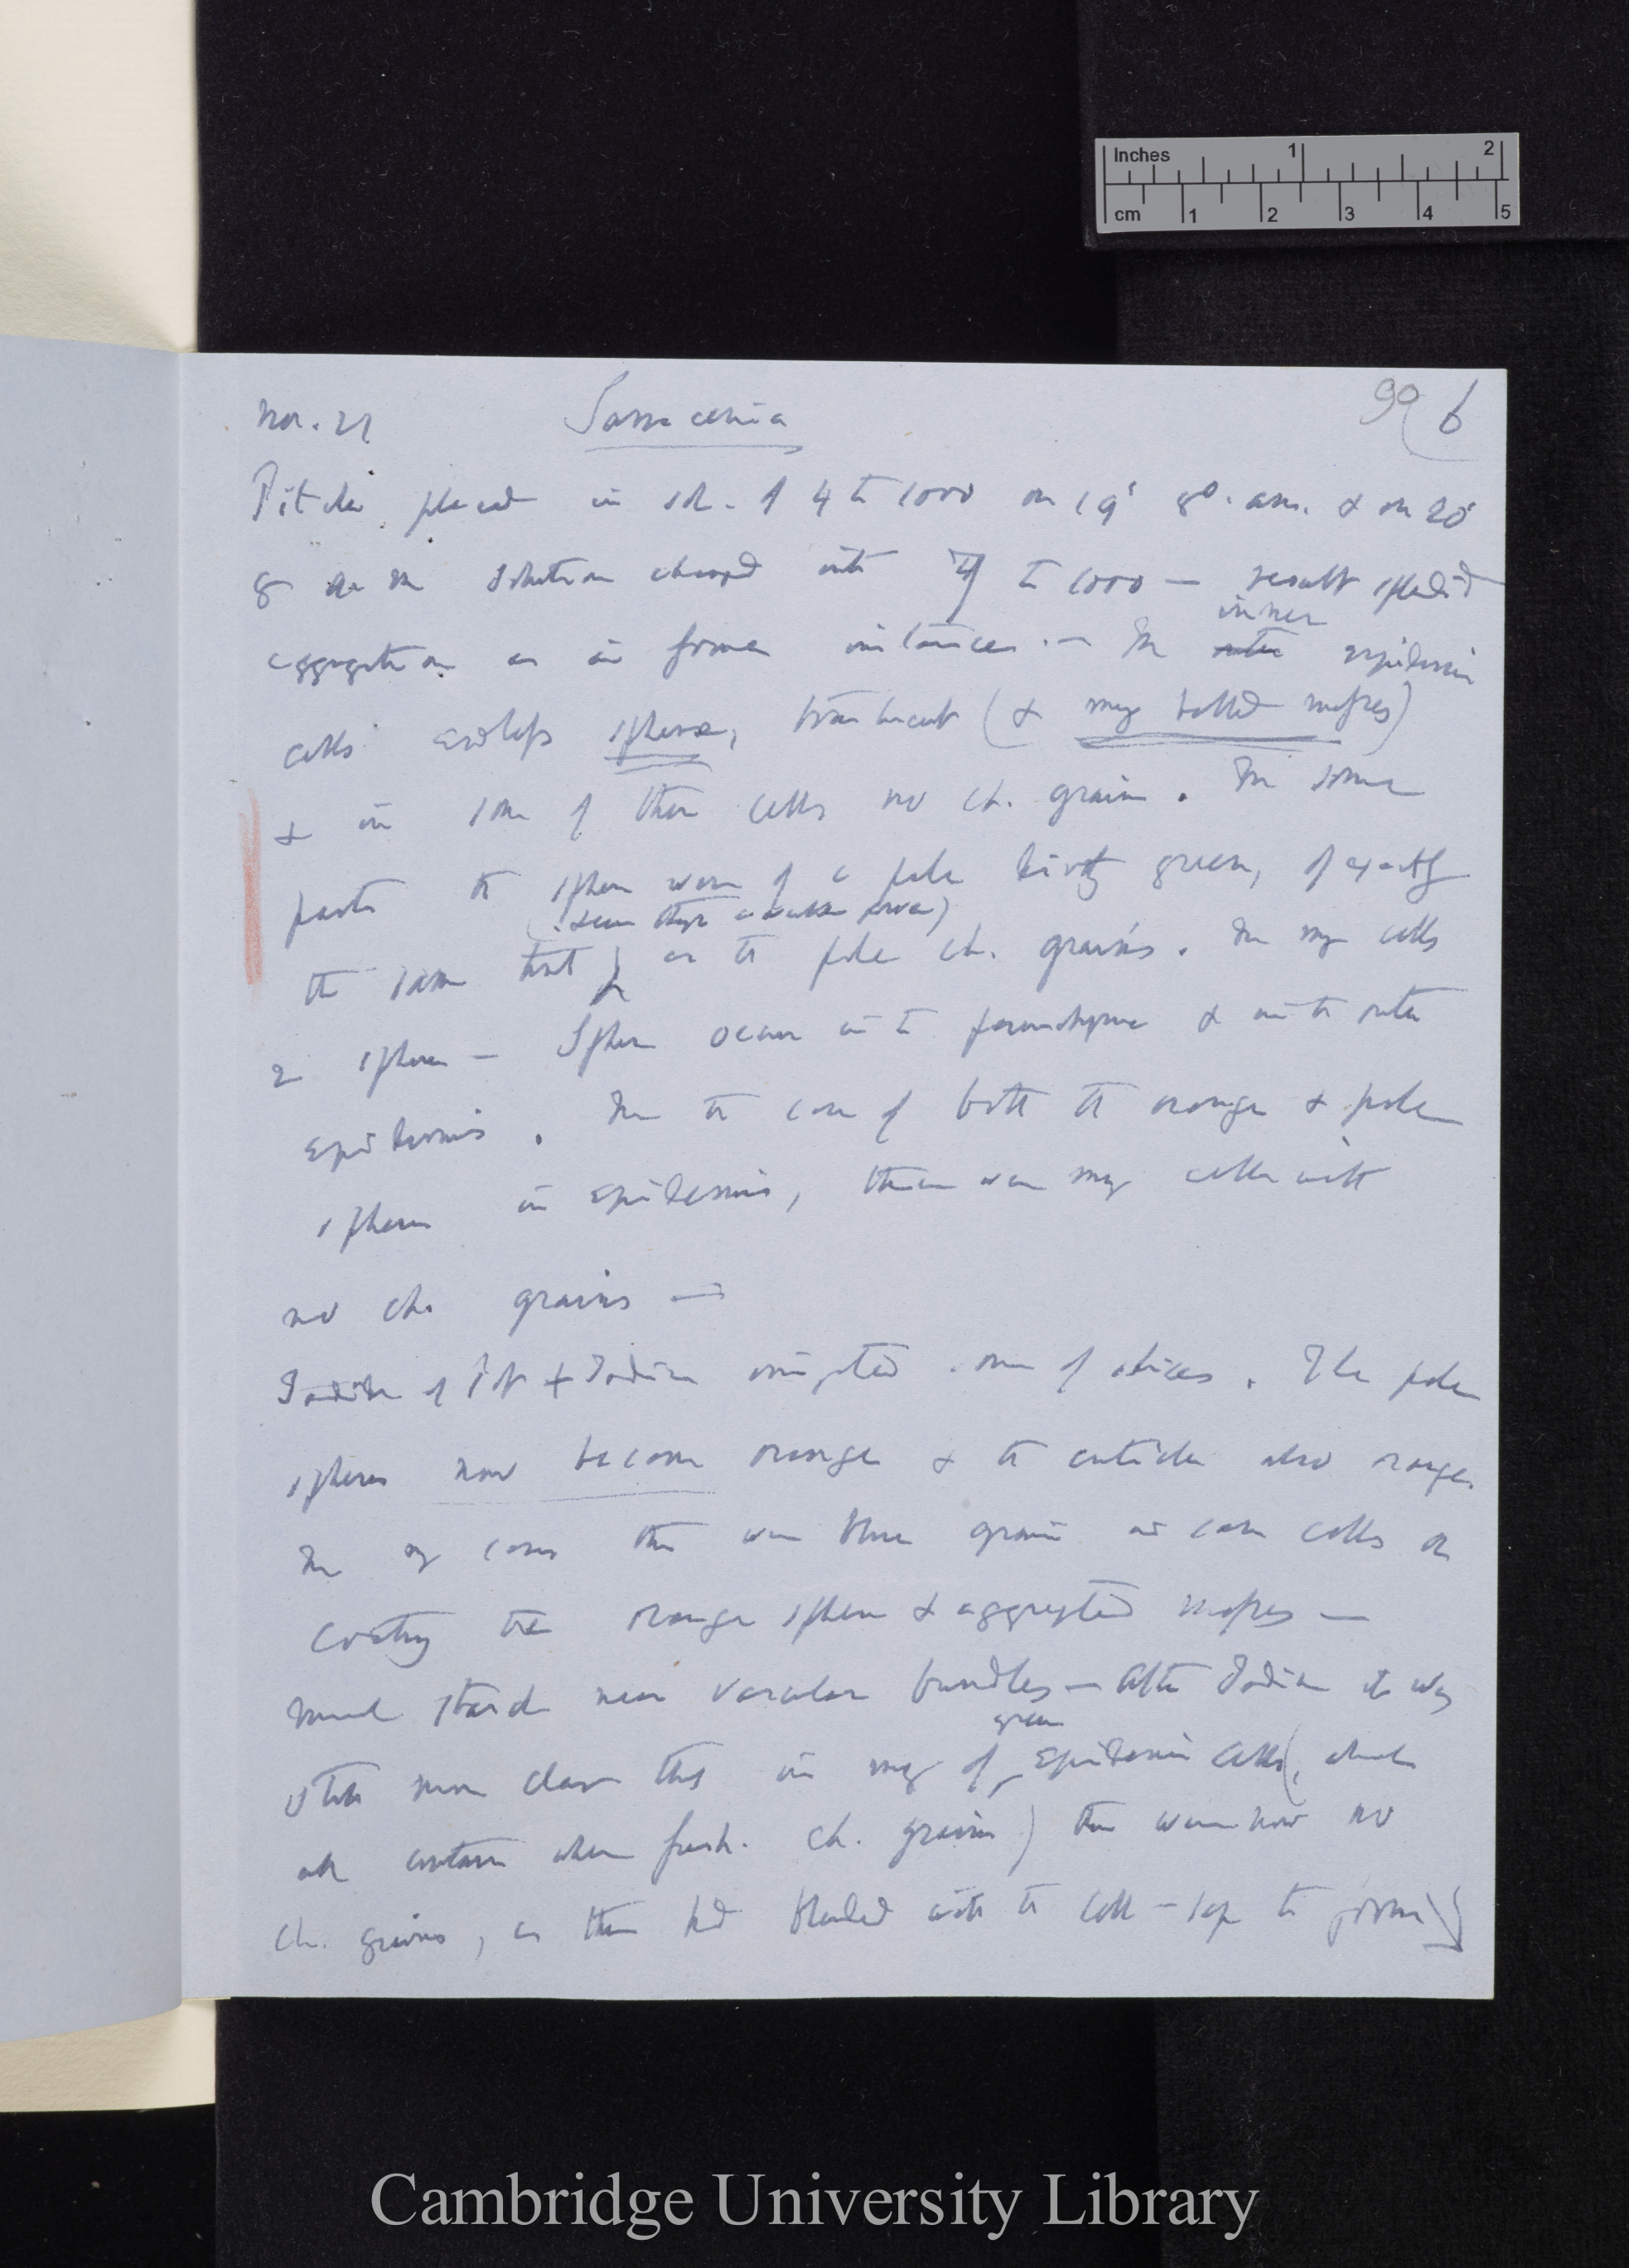 Inches 1 2
cm 1 2 3 4 5
Nov. 21 Sarracenia 99 (6
Pitcher placed in sol. of 4 to 1000 on 19' 8°. a.m. & on 20'
8 a m solution changed with 7 to 1000 — result splendid
aggregation as in former instances. — In outer inner epidermis
cells endless spheres, translucent (& many balled masses)
& in some of these cells no ch. grains. In some
parts the spheres were of a pale green, of exactly
(seen through)
the same tint as the pale ch. grains. In many cells
2 spheres — Spheres occur in the parenchyma & in the outer
epidermis. In the case of both the orange & pale
spheres in epidermis, there were many cells with
no ch. grains —
Iodide of Pot & Iodine irrigated some of slices. The pale
spheres now become orange & the cuticle also orange.
In many cases there were blue grains in same cells as
containing the orange spheres & aggregated masses —
Much starch near vascular bundles — After Iodine it was
still more clear that in many of green epidermis cells (, which
all contain when fresh. ch. grains) there were now no
ch. grains, as these had blended with the cell-sap to form
Cambridge University Library